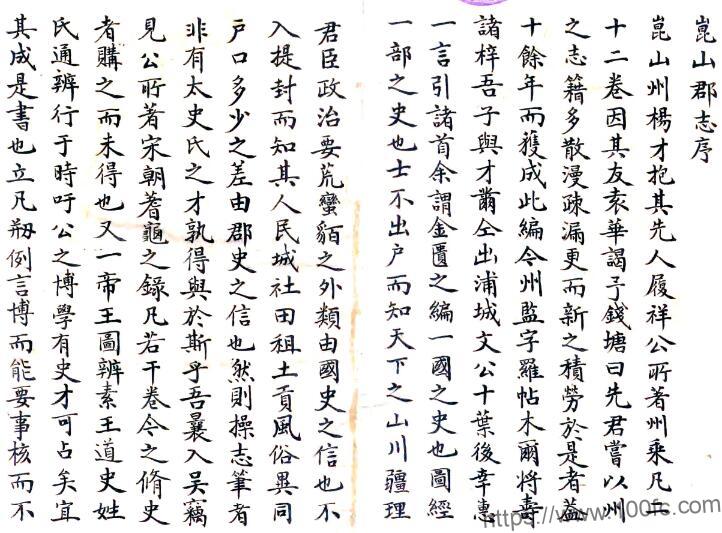 崑山郡志序
崑山州楊才抱其先人履祥公所著州乘凡二
十二卷因其友袁華謁予錢塘曰先君嘗以州
之志籍多散漫疎漏更而新之積勞於是者葢
十餘年而獲成此編今州監字羅帖木爾将壽
諸梓吾子與才嗣仝出浦城文公十葉後幸惠
一言引諸首余謂金匱之編一國之史也圖經
一部之史也士不出户而知天下之山川疆理
君臣政治要荒蠻貊之外類由國史之信也不
入提封而知其人民城社田租土貢風俗異同
戸口多少之差由郡史之信也然則操志筆者
非有太史氏之才孰得與於斯乎吾曩入吴竊
見公所著宋朝蓍龜之錄凡若干卷今之脩史
者購之而未得也又一帝王圖辨素王道史姓
氏通辨行于時吁公之博學有史才可占矣宜
其成是書也立凡剏例言博而能要事核而不
https://www.1100fs.com